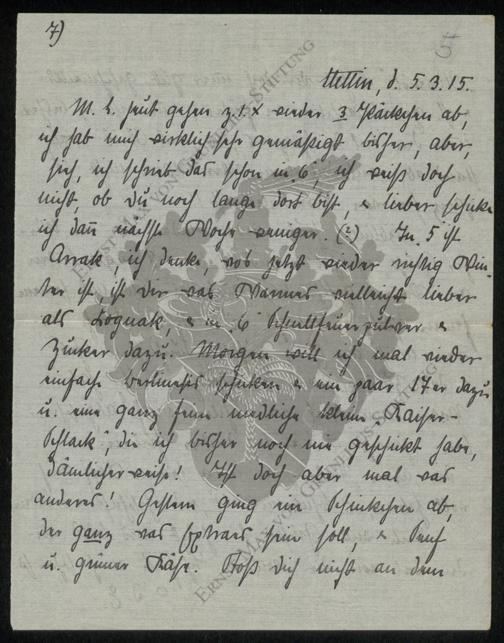 7)
Stettin, d. 5.3.15.
M. L. heut gehen z. 1. x wieder 3 Päckchen ab,
ich hab mich wirklich sehr gemäßigt bisher, aber,
sieh, ich schrieb das schon in 6, ich weiß doch
nicht, ob du noch lange dort bist, u lieber schicke
ich dann nächste Woche weniger. (?) In 5 ist
Arrak, ich denke, wos jetzt wieder richtig Win-
ter ist, ist dir was Warmes vielleicht lieber
als Kognak, u in 6 Schnellfeuerpulver u
Zucker dazu. Morgen will ich mal wieder
einfach berlinische schicken u ein paar 17er dazu
u. eine ganz feine niedliche kleine Kaiser-
Schlack, die ich bisher noch nie geschickt habe,
dämlicherweise! Ist doch aber mal was
anderes! Gestern ging ein Schinkchen ab,
der ganz was sein soll, u Senf
u. grüner Käse. Stoß dich nicht an dem
ERNST MAX VON GRUNELIUS-STIFTUNG
ERNST MAX VON GRUNELIUS-STIFTUNG